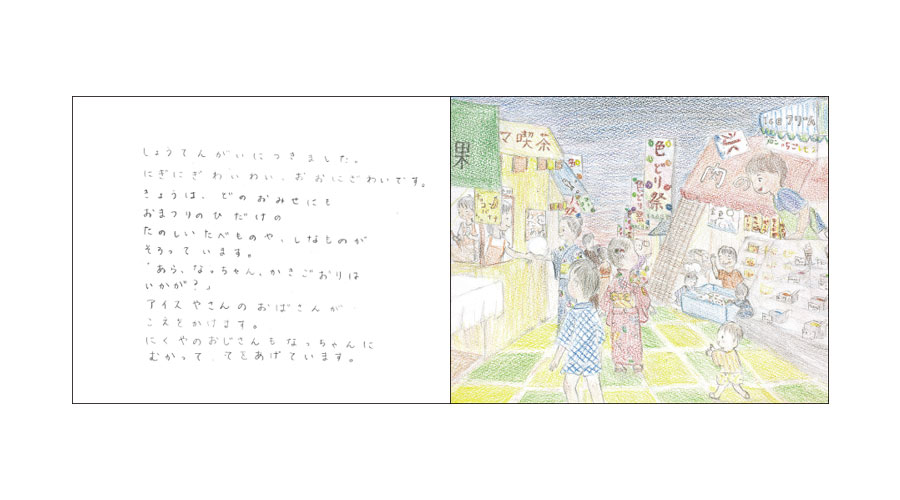 しょうてんがいにつきました。
にぎにぎわいわい、おおにぎわいです。
きょうは、どのおみせにも
おまつりのひだけの
たのしいたべものや、しなものが
そろっています。
「あら、なっちゃん、かきごおりは
いかが?」
アイスやさんのおばさんが
こえをかけます。
にくやのおじさんもなっちゃんに
むかって、てをあげています。
果
マ喫茶
色どり祭
色どり祭
肉の